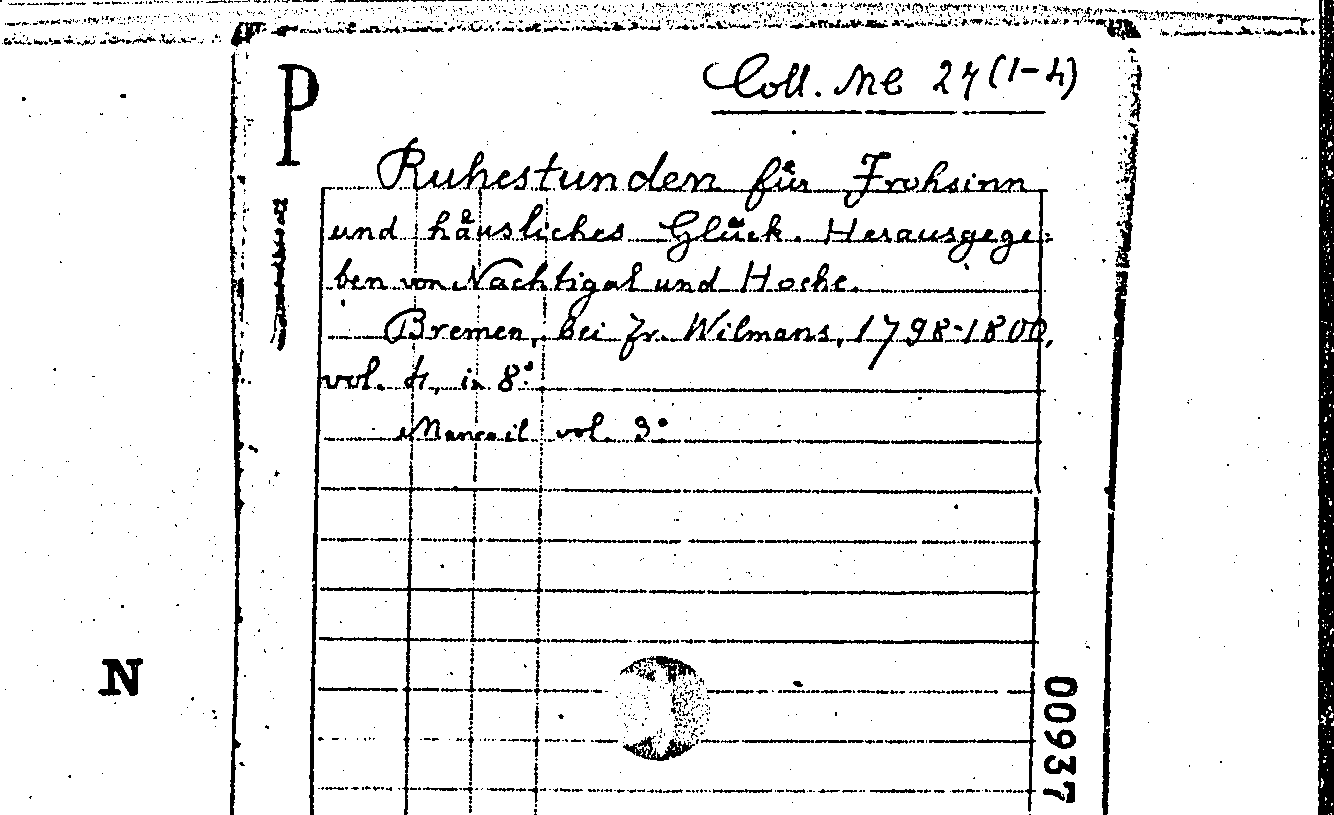 P
Coll. MC 24 (1-4)
Ruhestunden für Frohsinn
und häusliches Glück. Herausgege-
ben von Nachtigal und Hoche.
Bremen, bei Fr. Wilmans, 1798-1800,
vol. 4, in 8°
vol. 3°
N
00937